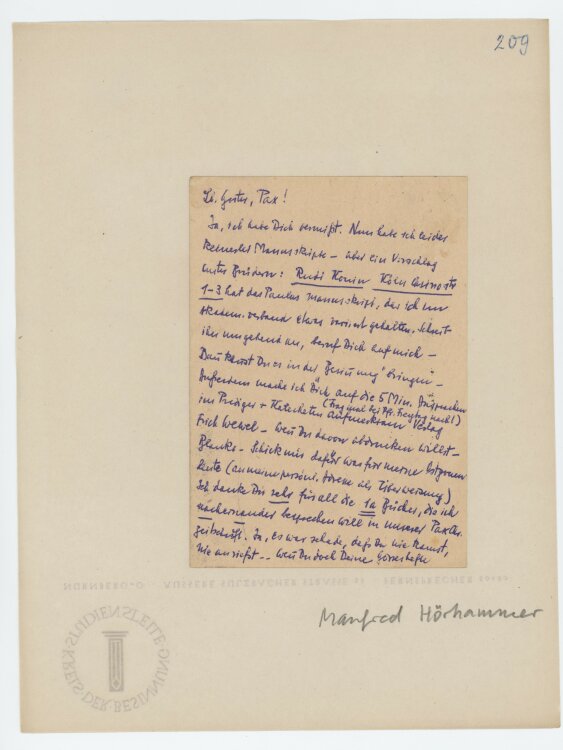 209
Lb. Gustv, Pax!
Ja, ich habe Dich vermißt. Nun habe ich leider
keinerlei Manuskripte – aber ein Vorschlag
unter Brüdern: Rudi Köln Casinostr
1–3 hat das Paulus manuskript, das ich im
akadem. verband etwas variiert gehalten. Schreib
ihm umgehend an, beruf Dich auf mich –
Dann kannst Du es in der „Besinnung" bringen –
Außerdem mache ich Dich auf die 5 Min. Ansprachen
(frag mal bei Pf. Freytag nach!)
im Prediger + Katecheten aufmerksam Verlag
Erich Wewel – wenn Du davon abdrucken willst –
Schick mir dafür was für meine
Leute (an meine persönl. Adresse als Überweisung)
Ich danke Dir sehr für all die 1a Bücher, die ich
nacheinander besprechen will in unserer Pax
zeitschrift. Ja, es war schade, daß Du nie kamst,
nie anriefst -- wenn Du doch Deine
NÜRNBERG-O · ÄUSSERE SULZBACHER STRASSE · FERNSPRECHER
Manfred Hörhammer
STUDIENSTELLE
KREIS DER BESINNUNG